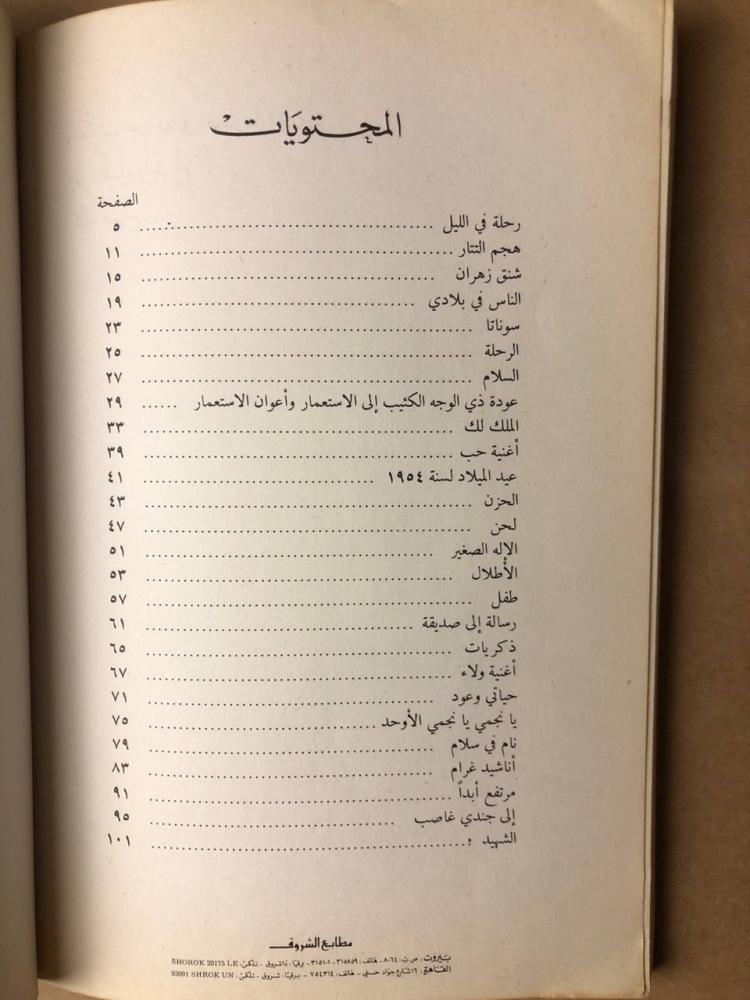 المحتويَات
الصفحة
رحلة في الليل ........................................ ٥
هجم التتار ........................................ ١١
شنق زهران ........................................ ١٥
الناس في بلادي ........................................ ١٩
سوناتا ........................................ ٢٣
الرحلة ........................................ ٢٥
السلام ........................................ ٢٧
عودة ذي الوجه الكئيب إلى الاستعمار وأعوان الاستعمار ...... ٢٩
الملك لك ........................................ ٣٣
أغنية حب ........................................ ٣٩
عيد الميلاد لسنة ١٩٥٤ ........................................ ٤١
الحزن ........................................ ٤٣
لحن ........................................ ٤٧
الإله الصغير ........................................ ٥١
الأطلال ........................................ ٥٣
طفل ........................................ ٥٧
رسالة إلى صديقة ........................................ ٦١
ذكريات ........................................ ٦٥
أغنية ولاء ........................................ ٦٧
حياتي وعود ........................................ ٧١
يا نجمي يا نجمي الأوحد ........................................ ٧٥
نام في سلام ........................................ ٧٩
أناشيد غرام ........................................ ٨٣
مرتفع أبداً ........................................ ٩١
إلى جندي غاصب ........................................ ٩٥
الشهيد ........................................ ١٠١
مطابع الشروق
بيروت: ص.ب: ٨٠٦٤ - هاتف: ٣١٥٨٥٩ - ٣١٥١٠١ - برقيا: داشروق - تلكس: SHOROK 20175 LE
القاهرة: ١٦ شارع جواد حسني - هاتف: ٧٥٤٣١٤ - برقيا: شروق - تلكس: 93091 SHROK UN